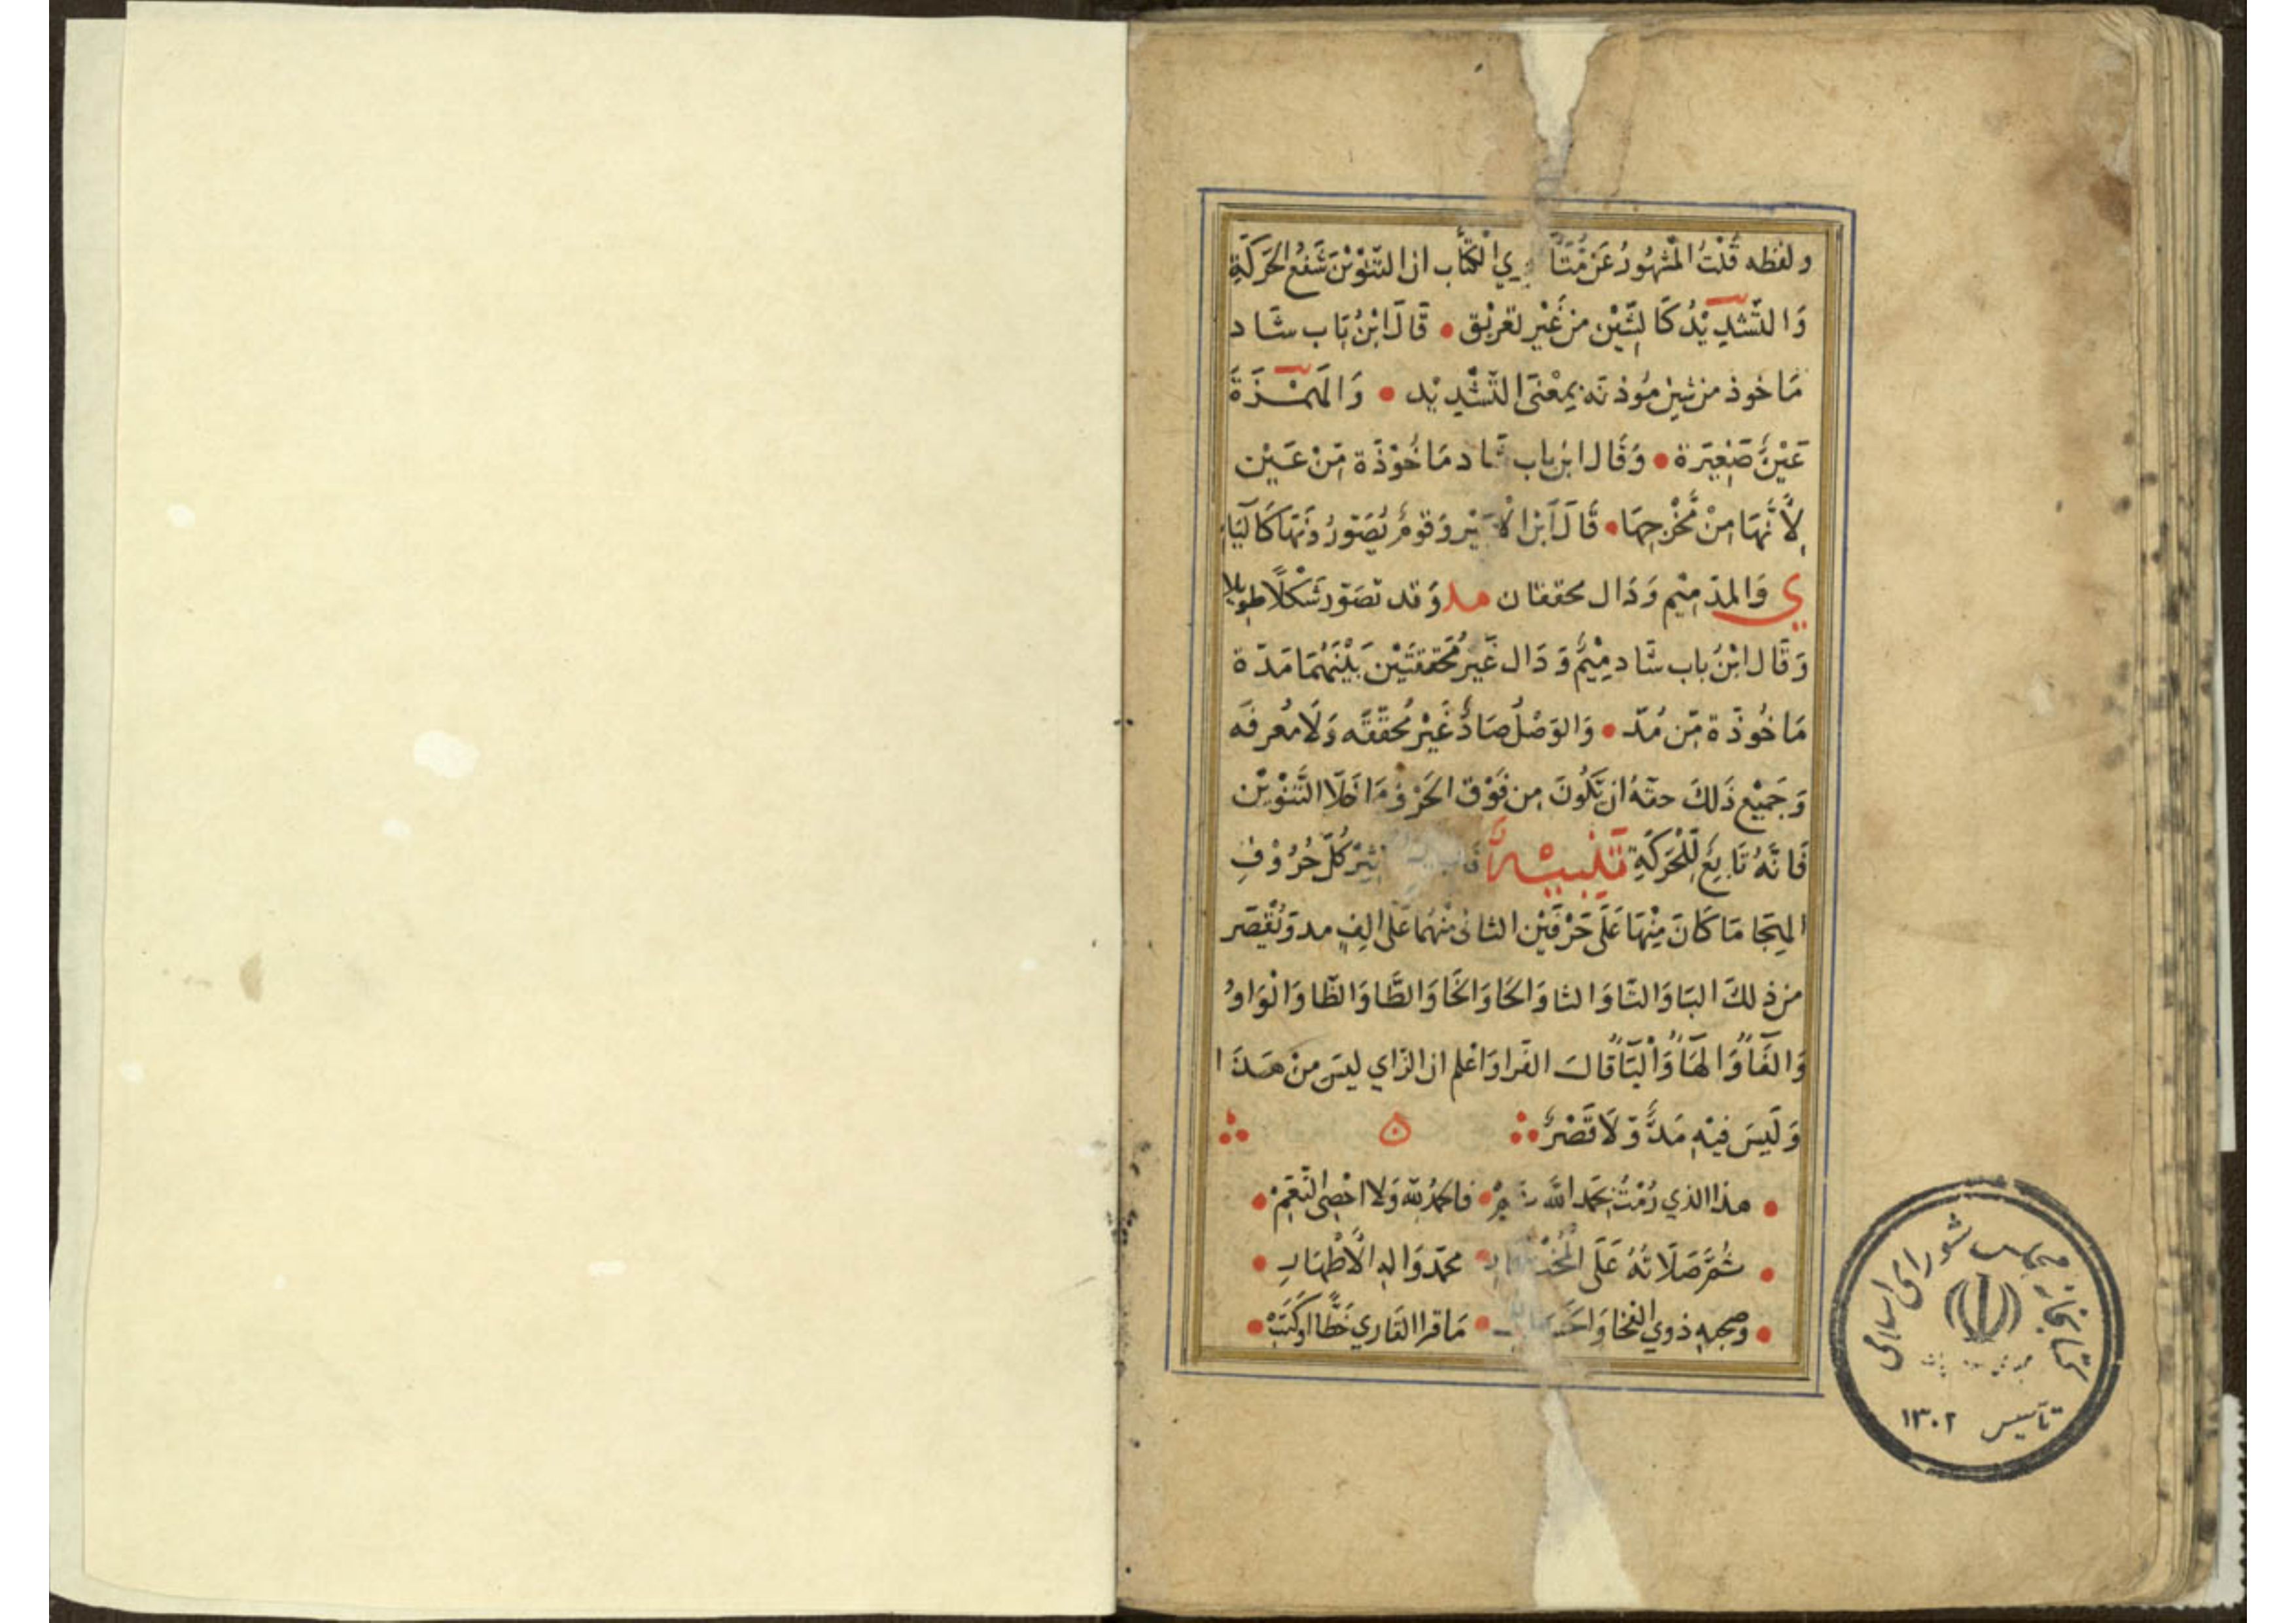 ولفظه قُلْتُ المَشْهُورُ عَنْ مُتَأَ رِي الكُتَّاب ان التَّنْوِيْنَ شَفْعُ الحَرَكَةِ
وَالتَّشْدِيْدُ كَالشِّيْنِ مِن غَيْرِ تعريْق • قَالَ ابْنُ بَاب شَاد
مَاخوذ من شين مُوذنَه بِمَعْنَى التَّشْدِيْد • وَالهَمْزَةَ
عَيْنٌ صَغِيْرَة • وَقَال ابن باب شاد مَاخُوْذَة مِّنْ عَيْن
لِأَنَّهَا مِنْ مَخْرَجِهَا • قَالَ ابن الاثير وَقومٌ يُصَوِّرُوْنَهَا كَاليَاءِ
ي وَالمَدّ مِيْم وَدَال محققان مد وَقد تصَوّر شَكْلًا طويلا
وَقَال ابْنُ باب شَاد مِيْمٌ وَدَال غَيْرُ مُحَققتَيْن بَيْنَهُمَا مَدّة
مَاخُوذَة مِّن مُدّ • وَالوَصْلُ صَادٌ غَيْرُ مُحَقّقَه وَلَا مُعرقَه
وَجَمِيْع ذَلكَ حقّهُ ان تَكُونَ مِن فَوْق الحَرْف مَا خَلَا التَّنْوِيْن
فَانَّهُ تَابِعٌ لِلْحَرَكَةِ تَنْبِيْهٌ كُلّ حُرُوْفِ
الهِجَا مَا كَانَ مِنْهَا عَلَى حَرْفَيْن الثانى مِنْهُمَا عَلَى الِفٍ مد وَنُقِصَر
من ذلكَ البَا وَالتَّا وَالثا وَالحَا وَالخَا وَالطَّا وَالظَّا وَالْوَاوُ
وَالفَاُ وَالهَاُ وَالْيَاُ قَالَ الفَرا وَاعْلم ان الزَّاي ليسَ مِنْ هَذَا
وَلَيسَ فيْهِ مَدٌّ وَّلَا قَصْرٌ
• هذا الذي رُمْتُ بِحَمْد اللّه • فالحمْدُ للّه وَلا احْصِى النّعَمْ •
• ثُمَّ صَلَاتُهُ عَلَى • محمّد وَالهِ الْأَطْهَارِ •
• وَصحبهِ ذوي • مَا قرا القَاري خَطًّا اوكَتَبْ •
كتابخانه مجلس شورای اسلامی
تأسیس ۱۳۰۲